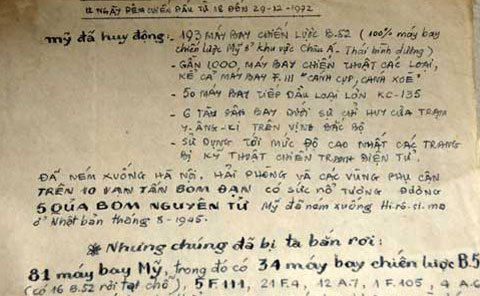 12 NGÀY ĐÊM CHIẾN ĐẤU TỪ 18 ĐẾN 29-12-1972
mỹ đã huy động:- 193 MÁY BAY CHIẾN LƯỢC B.52 (100% máy bay
chiến lược Mỹ ở khu vực Châu Á - Thái bình dương)
- GẦN 1000, MÁY BAY CHIẾN THUẬT CÁC LOẠI,
KỂ CẢ MÁY BAY F.111 "CÁNH CỤP, CÁNH XOÈ"
- 50 MÁY BAY TIẾP DẦU LOẠI LỚN KC-135
- 6 TÀU SÂN BAY DƯỚI SỰ CHỈ HUY CỦA TRẠM
Y-ĂNG-KI TRÊN VỊNH BẮC BỘ
- SỬ DỤNG TỚI MỨC ĐỘ CAO NHẤT CÁC TRANG
BỊ KỸ THUẬT CHIẾN TRANH ĐIỆN TỬ.
ĐÃ NÉM XUỐNG HÀ NỘI, HẢI PHÒNG VÀ CÁC VÙNG PHỤ CẬN
TRÊN 10 VẠN TẤN BOM ĐẠN CÓ SỨC NỔ TƯƠNG ĐƯƠNG
5 QUẢ BOM NGUYÊN TỬ Mỹ đã ném xuống Hi-rô-si-ma
ở Nhật bản tháng 8-1945.
* Nhưng chúng đã bị ta bắn rơi:
81 máy bay Mỹ, trong đó có 34 máy bay chiến lược B.5
(có 16 B.52 rơi tại chỗ), 5 F.111, 21 F.4, 12 A.7, 1 F.105, 4 A.6